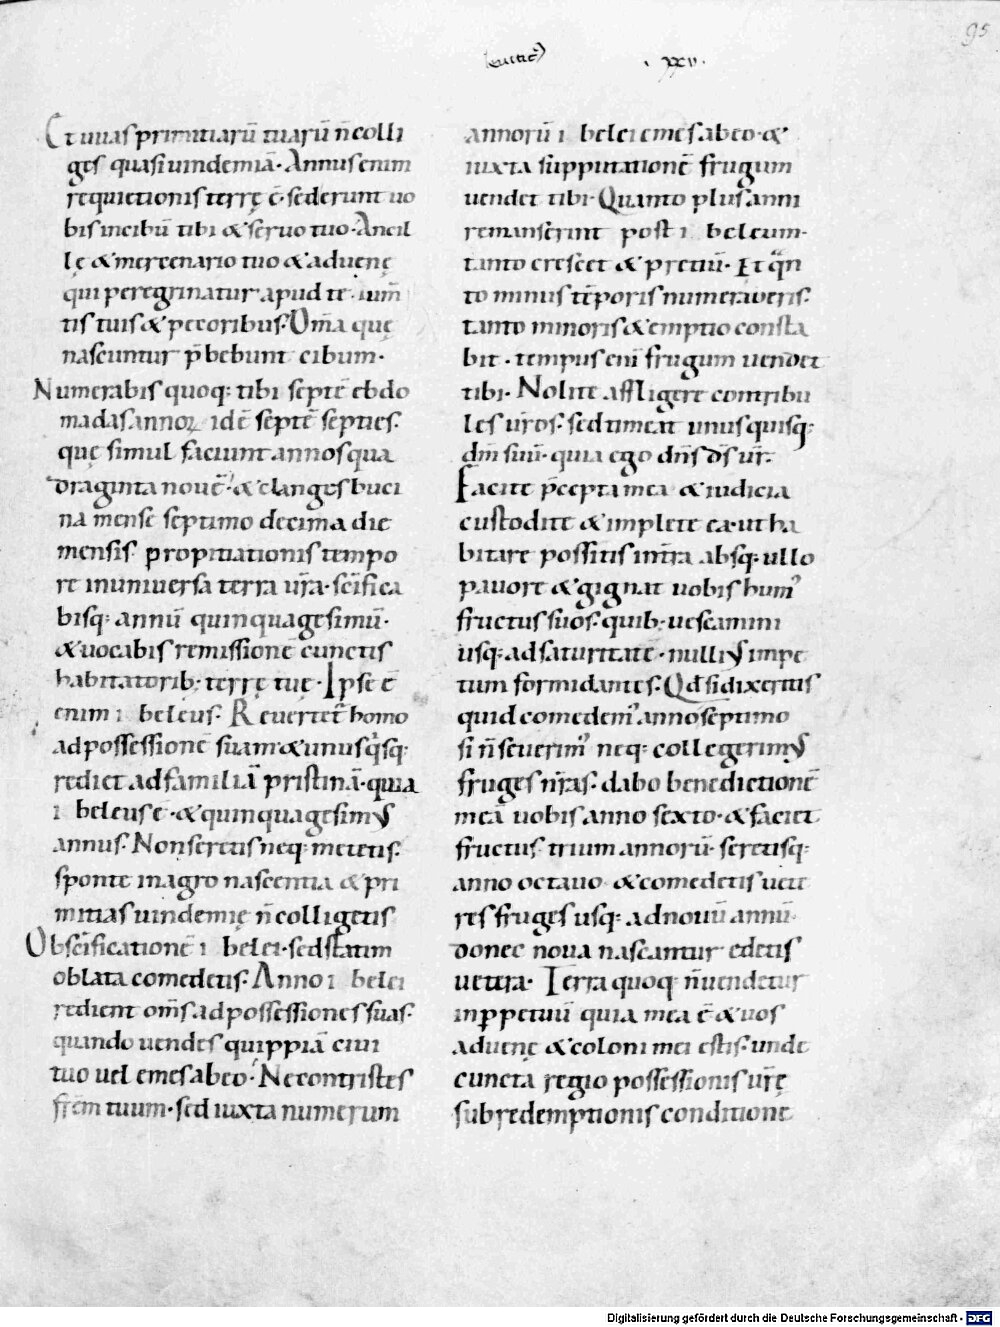 95
leuitic̄
· xxv ·
Et uuas primitiarū tuarū n̄ colli
ges quasi uindemiā· Annus enim
requietionis terrę ē· sed erunt uo
bis in cibū tibi & seruo tuo· Ancil
lę & mercenario tuo & aduenę
qui peregrinatur apud te· ium̄
tis tuis & pecoribus· Om̄a quę
nascuntur p̄bebunt cibum·
Numerabis quoq: tibi septē ebdo
madas annoꝝ idē septē septies·
quę simul faciunt annos qua
draginta nouē· & clanges buci
na mense septimo decima die
mensis propitiationis tempo
re in uniuersa terra ur̄a· sc̄ifica
bisq: annū quinquagesimū·
& uocabis remissionē cunctis
habitatorib: terrę tuę· Ipse ē
enim i beleus· Reuertet̄ homo
ad possessionē suam & unusq̇sq:
rediet ad familiā pristinā· quia
i beleus ē· & quinquagesimus
annus· Non seretis neq: metetis
sponte in agro nascentia & pri
mitias uindemię n̄ colligetis
Ob sc̄ificationē i belei· sed statim
oblata comedetis· Anno i belei
redient om̄s ad possessiones suas·
quando uendes quippiā ciui
tuo uel emes ab eo· Ne contristes
fr̄em tuum· sed iuxta numerum
annorū i belei emes ab eo· &
iuxta supputationē frugum
uendet tibi· Quanto plus anni
remanserint post i beleum·
tanto crescet & pretiū· Et qȧn
to minus tēporis numeraueris·
tanto minoris & emptio consta
bit· tempus eni frugum uendet
tibi· Nolite affligere contribu
les ur̄os· sed timeat unusquisq:
dm̄ suū· quia ego dn̄s ds̄ ur̄·
Facite p̄cepta mea & iudicia
custodite & implete ea· ut ha
bitare possitis in tr̄a absq: ullo
pauore & gignat uobis hum'
fructus suos· quib: uescamini
usq: ad saturitatē· nullius impe
tum formidantes· Qd̄ si dixeritis
quid comedem' anno septimo
si n̄ seuerim' neq: collegerimus
fruges nr̄as· dabo benedictionē
meā uobis anno sexto· & faciet
fructus trium annorū· seretisq:
anno octauo· & comedetis uete
res fruges usq: ad nouū annū
donec noua nascantur edetis
uetera· Terra quoq: n̄ uendetur
in ꝑpetuū quia mea ē & uos
aduenę & coloni mei estis· unde
cuncta regio possessionis ur̄ę
sub redemptionis conditione
Digitalisierung gefördert durch die Deutsche Forschungsgemeinschaft - DFG